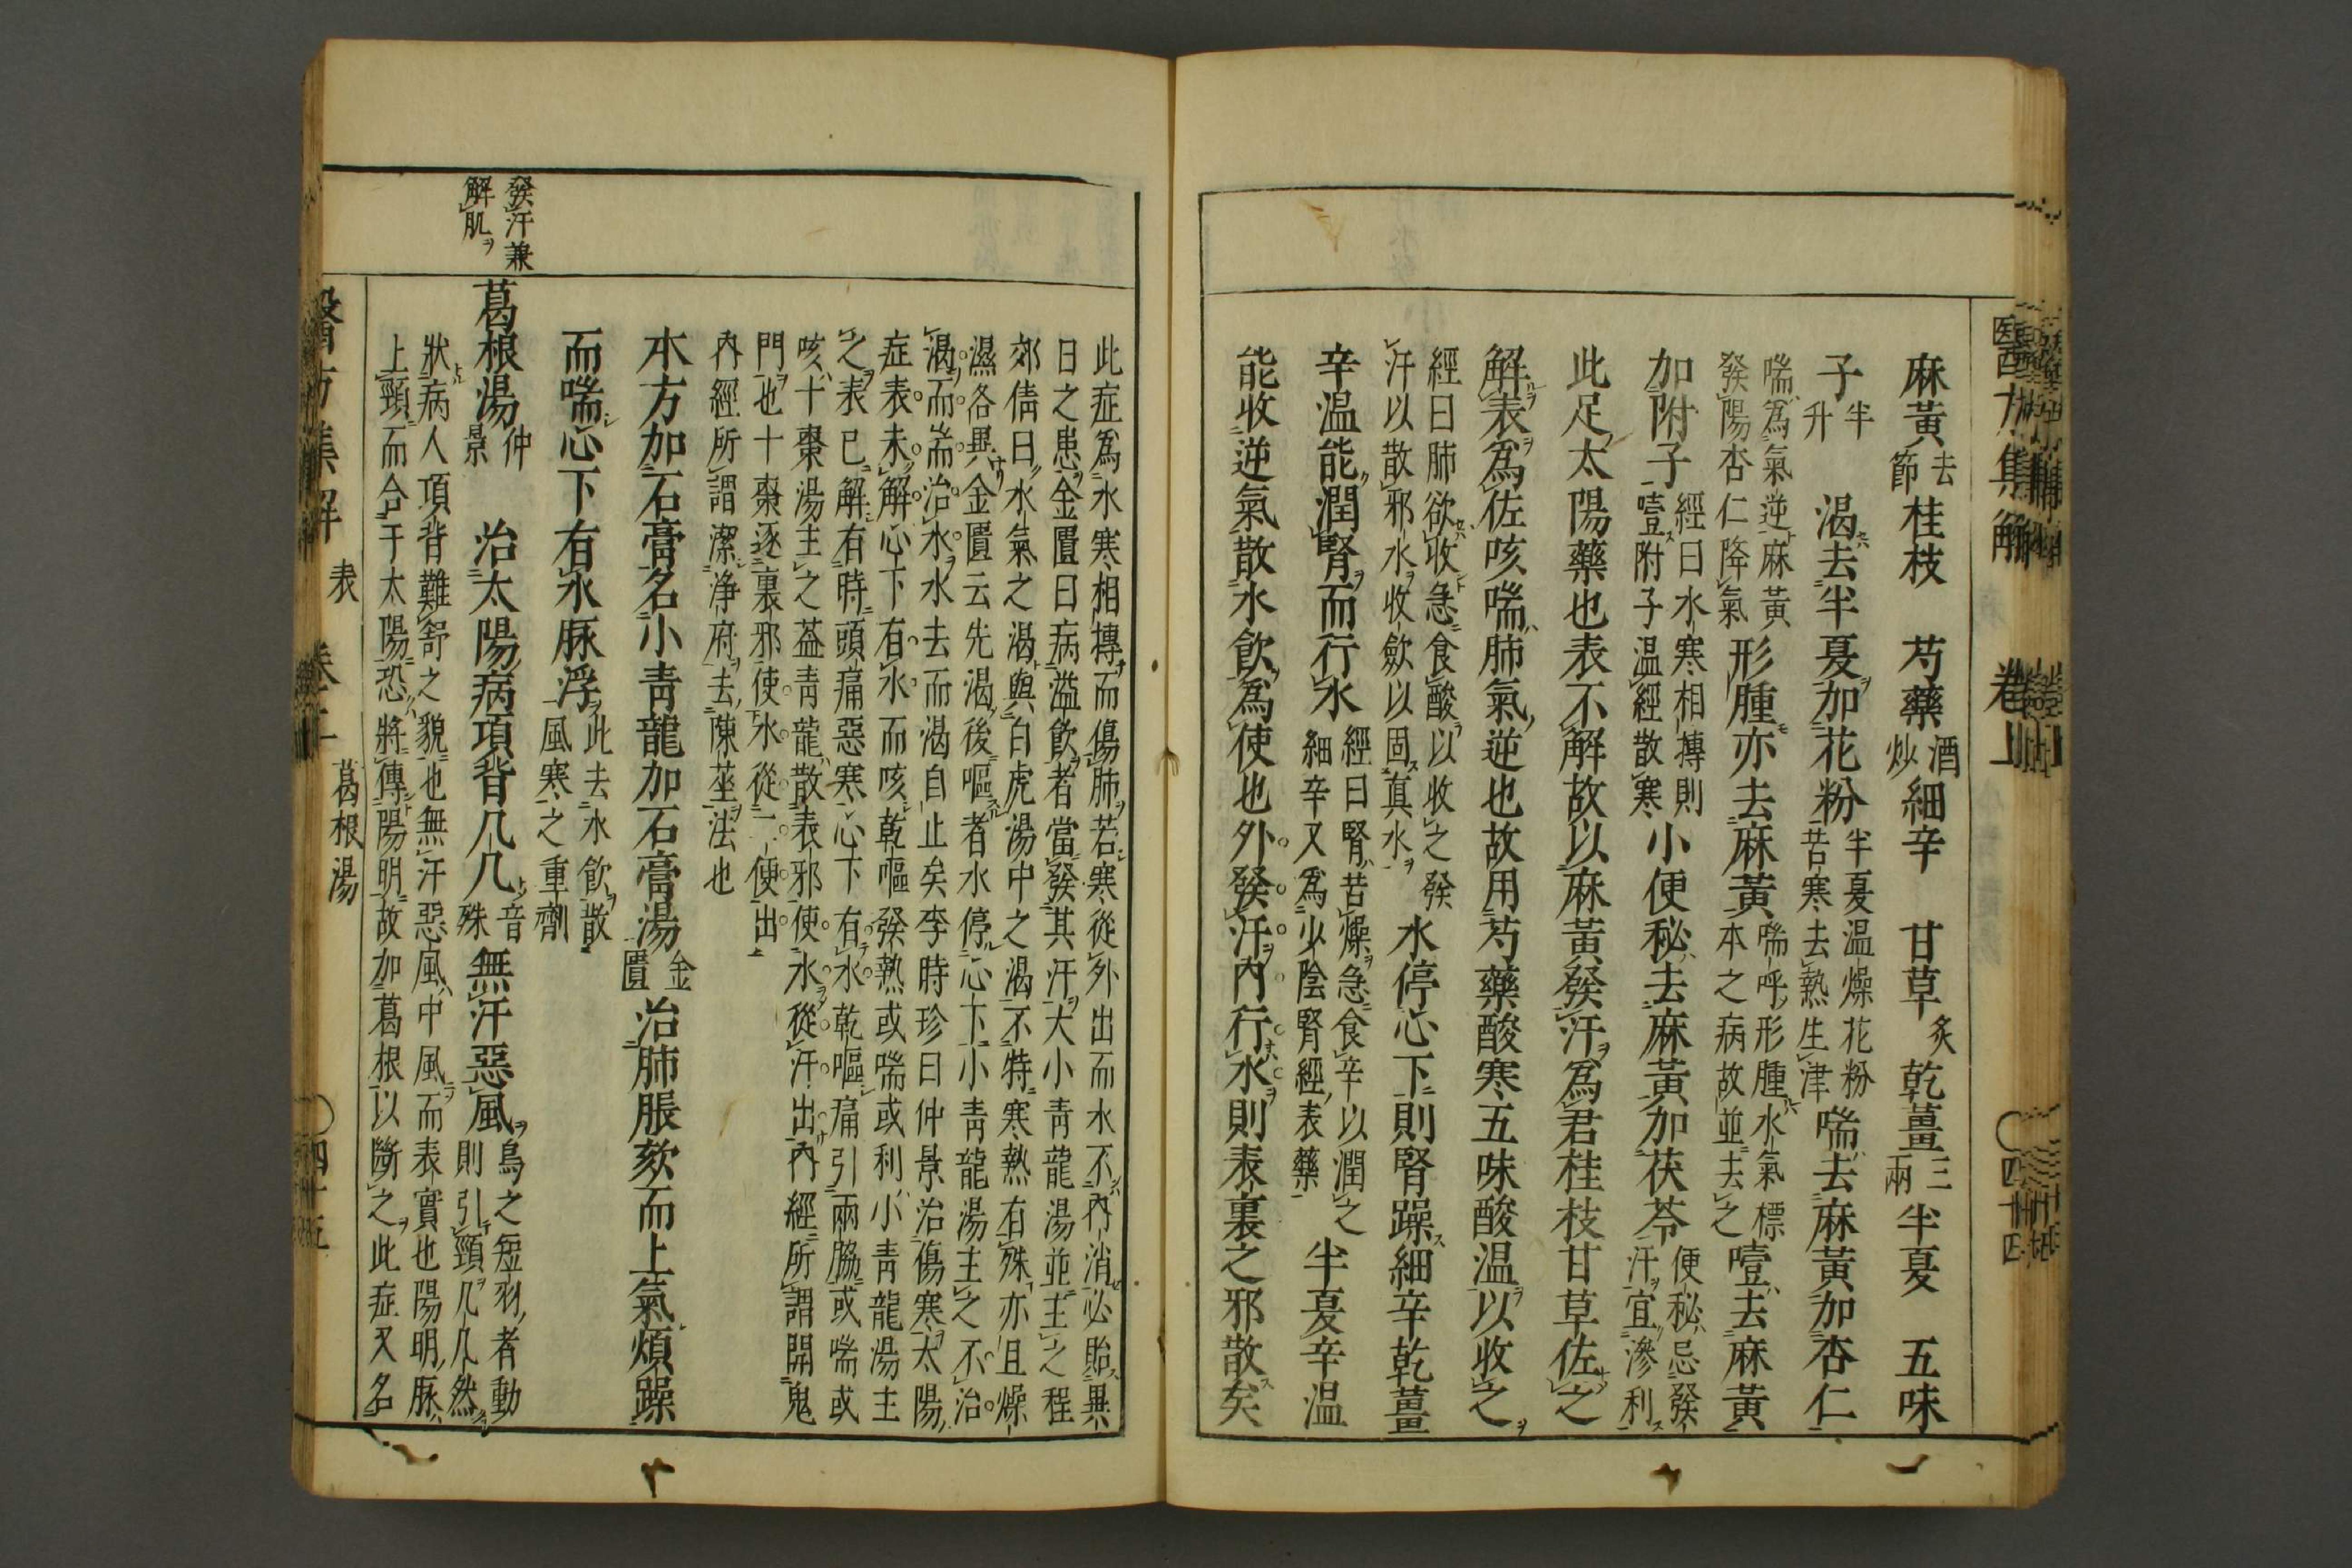 醫方集解　卷上　〇四十四
麻黃去節桂枝　芍藥酒炒細辛　甘草炙乾薑三兩半夏　五味
子半升　渴去半夏加花粉半夏温燥花粉苦寒去熱生津喘去麻黃加杏仁
喘爲氣逆麻黃發陽杏仁降氣形腫亦去麻黃喘呼形腫水氣標本之病故並去之噎去麻黃
加附子經曰水寒相搏則噎附子温經散寒小便秘去麻黃加茯苓便秘忌發汗宜滲利
此足太陽藥也表不解故以麻黃發汗爲君桂枝甘草佐之
解表爲佐咳喘肺氣逆也故用芍藥酸寒五味酸温以收之
經曰肺欲收急食酸以收之發汗以散邪水收歛以固眞水　水停心下則腎躁細辛乾薑
辛温能潤腎而行水經曰腎苦燥急食辛以潤之細辛又爲少陰腎經表藥　半夏辛温
能收逆氣散水飲爲使也外發汗內行水則表裏之邪散矣
此症爲水寒相搏而傷肺若寒從外出而水不內消必貽異
日之患金匱曰病溢飲者當發其汗大小青龍湯並主之程
郊倩曰水氣之渴與白虎湯中之渴不特寒熱有殊亦且燥
濕各異金匱云先渴後嘔者水停心下小青龍湯主之不治
渴而耑治水水去而渴自止矣李時珍曰仲景治傷寒太陽
症表未解心下有水而咳乾嘔發熱或喘或利小青龍湯主
之表已解有時頭痛惡寒心下有水乾嘔痛引兩脇或喘或
咳十棗湯主之葢青龍散表邪使水從汗出內經所謂開鬼
門也十棗逐裏邪使水從二便出
內經所謂潔淨府去陳莝法也
本方加石膏名小青龍加石膏湯金匱治肺脹欬而上氣煩躁
而喘心下有水脉浮此去水飲散風寒之重劑
發汗兼解肌
葛根湯仲景　治太陽病項背几几音殊無汗惡風鳥之短羽者動則引頸几几然
狀病人項背難舒之貌也無汗惡風中風而表實也陽明脉
上頸而合于太陽恐將傳陽明故加葛根以斷之此症又名
醫方集解　表　卷上　葛根湯　〇四十五